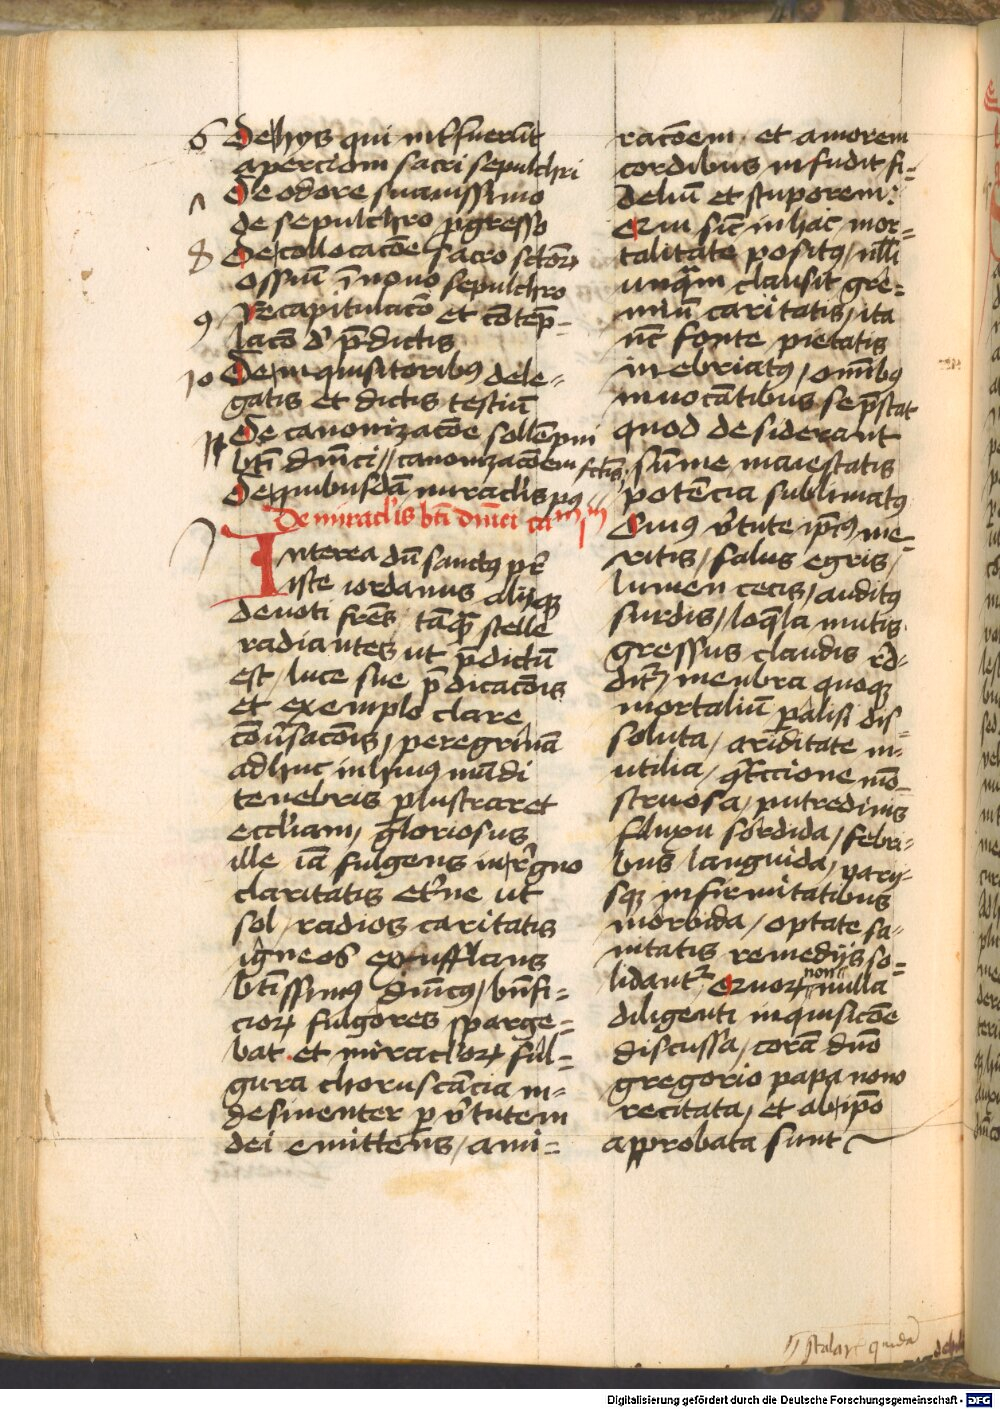 6 De hys qui int̄fuerūt
apercioni sacri sepulchri
7 De odore suauissimo
de sepulchro p̱gresso
8 De collocacōe sacro sctōrꝝ
ossiū ī nouo sepulchro
9 Recapitulacō et cōtēp=
lacō d' p̄dictis
10 De inquisitoribꝯ dele=
gatis et dictis testiū
11 De canonizacōe sollēpni
bt̄i dn̄ici // canonizacōem
De quibusdā miraclis
De miraclis bt̄i dn̄ici
Interea dū sanctꝯ pr̄
iste iordanus alijqꝫ
deuoti fr̄es tāq̄ꝫ stelle
radiantes ut p̄dictū
est / luce sue p̄dicacōis
et exemplo clare
cōu̓sacōis / peregrinā
adhuc in huiꝯ mūdi
tenebris ꝑlustraret
eccl̓iam / gloriosus
ille iā fulgens in regno
claritatis et̓ne ut
sol / radios caritatis
igneos exufflans
bt̄issimꝯ dn̄icꝯ / bn̄fi=
ciorꝝ fulgores sparge=
bat et miraclorꝝ ful=
gura choruscācia in=
desinenter ꝑ v̓tutem
dei emittens / ami=
racōem et amorem
cordibus infudit fi=
deliū et stuporem:
Qui sic̄ in hac mor=
talitate positꝯ / nll̄i
unq̄m clausit gre=
miū caritatis / ita
nūc fonte pietatis
inebriatꝯ / om̄ibꝯ
inuocātibus se p̄stat
quod desiderant
sūme maiestatis
potēcia sublimatꝯ
Cuiꝯ v̓tute ip̄iꝯ me=
ritis / salus egris /
lumen cecis / auditꝯ
surdis / loq̄la mutis
gressus claudis red=
dit̓ / membra quoqꝫ
mortaliū ꝑalisi dis=
soluta / ariditate in=
utilia / ꝯtccione mō=
struosa / putredinis
fluxu sordida / febri=
bus languida / varij=
sqꝫ infirmitatibus
morbida / optate sa=
nitatis remedijs so=
lidant̓ Quorꝝ non nulla
diligenti inquisicōe
discussa / corā dn̄o
gregorio papa nono
recitata / et ab ip̄o
approbata sunt
Digitalisierung gefördert durch die Deutsche Forschungsgemeinschaft - DFG